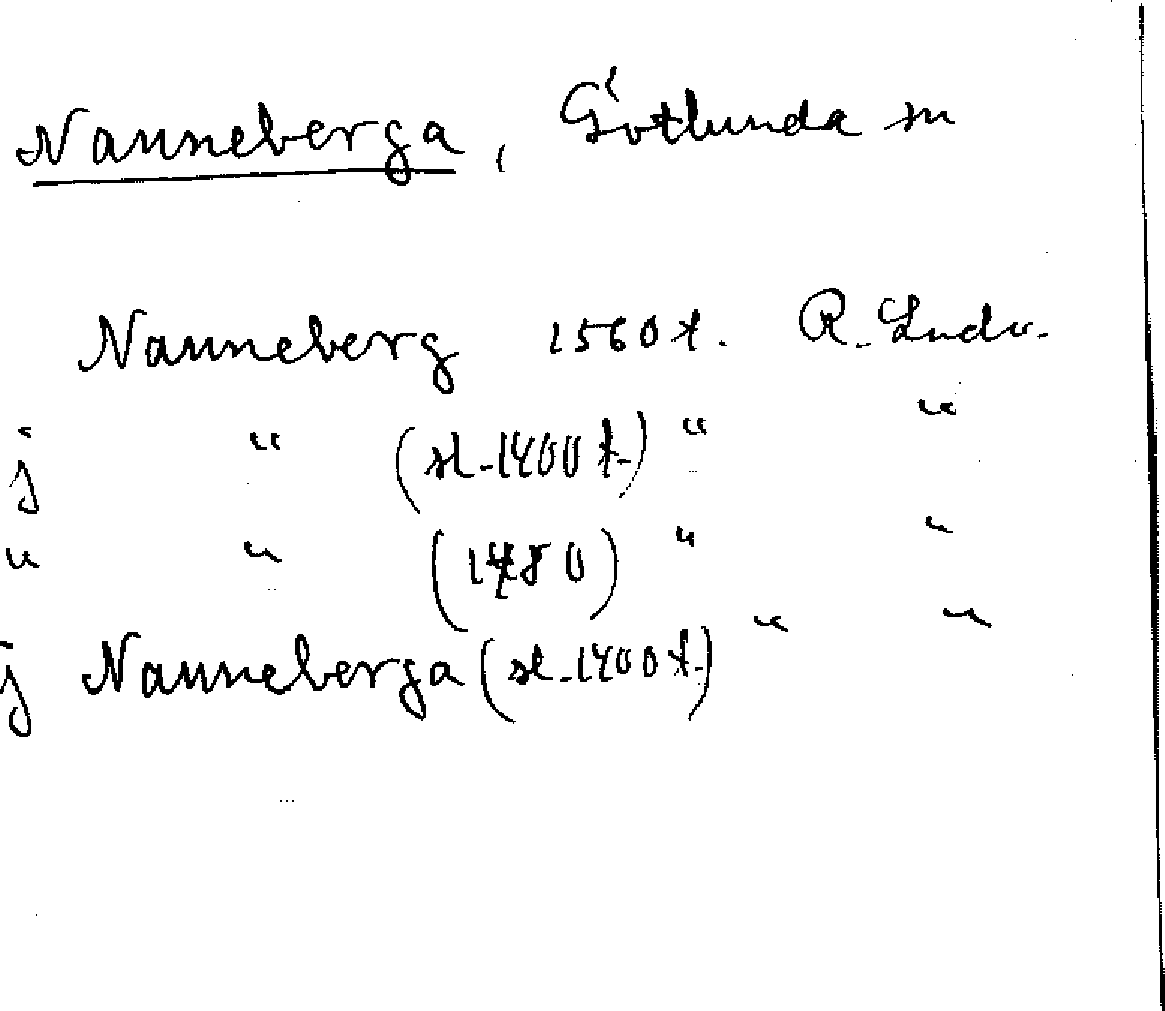 Nanneberga, Götlunda sn
Nanneberg 1560 t. R. Ludv.
j " (sl. 1400 t.) " "
" " (1480) " "
j Nanneberga (sl. 1400 t.) " "